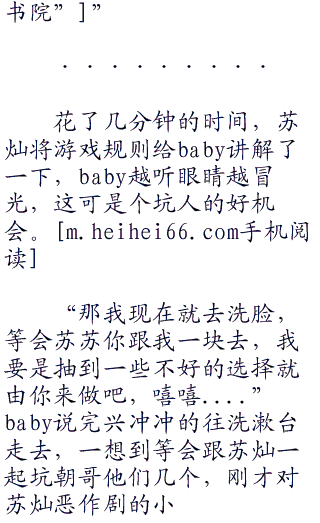 书院”]”
. . . . . . . . .
花了几分钟的时间，苏
灿将游戏规则给baby讲解了
一下，baby越听眼睛越冒
光，这可是个坑人的好机
会。[m.heihei66.com手机阅
读]
“那我现在就去洗脸，
等会苏苏你跟我一块去，我
要是抽到一些不好的选择就
由你来做吧，嘻嘻....”
baby说完兴冲冲的往洗漱台
走去，一想到等会跟苏灿一
起坑朝哥他们几个，刚才对
苏灿恶作剧的小